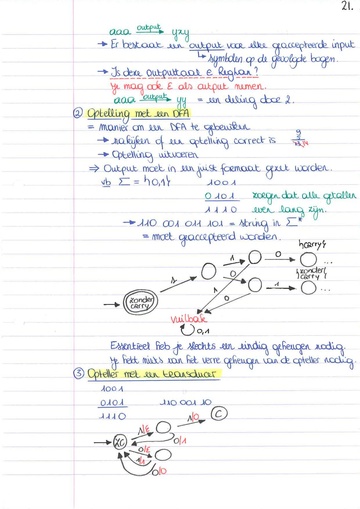 21.
aaa output→ yxy
→ Er bestaat een output voor elke geaccepteerde input
↳ symbolen op de gevolgde bogen.
→ Is deze outputtaal ∈ RegLan?
Je mag ook ε als output nemen.
aaa output→ yy = een deling door 2.
② Optelling met een DFA
= manier om een DFA te gebruiken
→ nakijken of een optelling correct is
→ Optelling uitvoeren
⇒ Output moet in een juist formaat gezet worden.
vb Σ = {0,1} 1001
0101 zorgen dat alle getallen
1110 even lang zijn.
→ 110 001 011 101 = string in Σ*
= moet geaccepteerd worden.
{carry}
1 0 ...
zonder carry 1 {zonder carry}
1 0 0 ...
vuilbak
0,1
Essentieel heb je slechts een eindig geheugen nodig.
Je hebt niets van het verre geheugen van de opteller nodig.
③ Opteller met een transducer
1001
0101 110 00 1 10
1110
1/0 C
1/ε
XC 0/1
0/ε
1/1
0/0